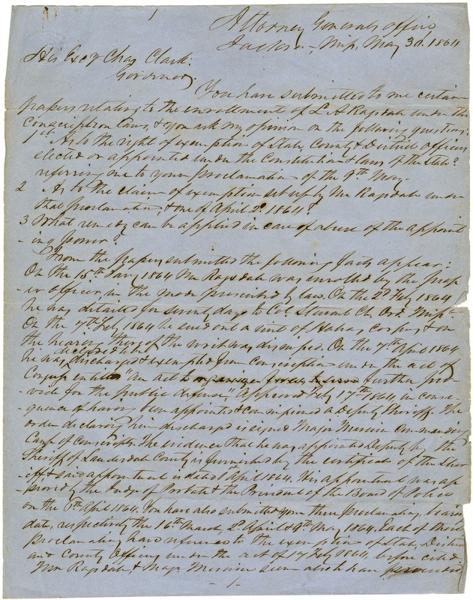 Attorney Generals office
Jackson, Miss, May 3d. 1864
His Excy Chas Clark.
Governor,
You have submitted to me certain
papers relating to the enrollment of L A Ragsdale under the
Conscription Laws, & you ask my opinion on the following questions
1st As to the right of exemption of State, County & District officers
elected or appointed under the Constitution & laws of the State?
referring me to your proclamation of the May.
2 As to the claim of exemption set up by Mr Ragsdale under
that proclamation, & one of April 2d. 1864?
3 What remedy can be applied in case of abuse of the appoint
ing power?
From the papers submitted the following facts appear:
On the 16th Jany 1864 Mr Ragsdale was enrolled by the prop
er officer in the mode prescribed by law. On the 2d Feby 1864
he was detailed for seventy days to Col
On the 7th Feby 1864 he sued out a writ of Habeas corpus & on
the hearing thereof the writ was dismissed. On the 7th April 1864
he was discharged & exempted from Conscription under the act of
Congress entitled "An Act further pro
vide for the public defence," approved Feby 17th 1864, in conse
quence of having been appointed & commissioned a Deputy Sheriff. The
order declaring him discharged is signed Major Commander
Camp of Conscripts. The evidence that he was appointed Deputy by the
Sheriff of Lauderdale County is furnished by the certificate of the Sher
iff & his appointment is dated 1 April 1864. His appointment was ap
proved by the Judge of Probate & the President of the Board of Police
on the 6th April 1864. You have also submitted your three proclamations, bearing
date, respectively the 16th March, 2d April & May 1864. Each of these
proclamations have reference to the exemption of State, District
and County Officers under the act of 17 Feby 1864, before cited.
Mr Ragsdale & Major seem also to have